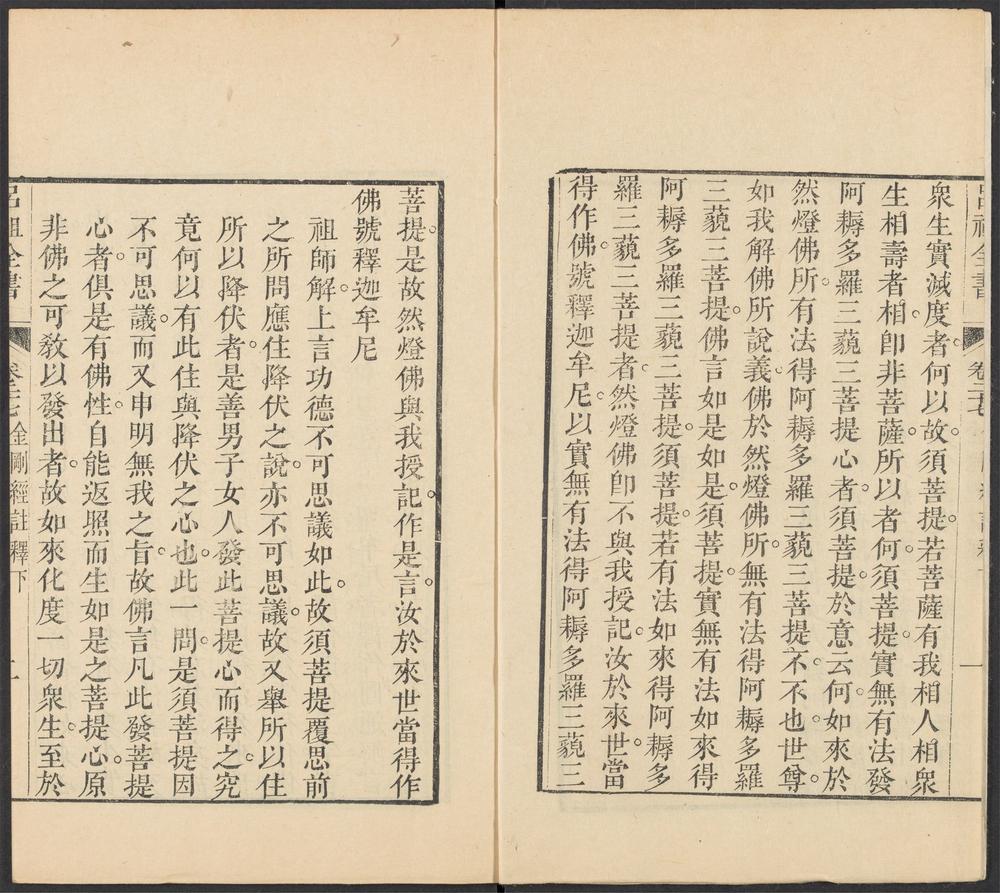 呂祖全書 卷三七 一
衆生實滅度者。何以故。須菩提。若菩薩有我相人相衆
生相壽者相。卽非菩薩。所以者何。須菩提。實無有法發
阿耨多羅三藐三菩提心者。須菩提。於意云何。如來於
然燈佛所。有法得阿耨多羅三藐三菩提不。不也。世尊。
如我解佛所說義。佛於然燈佛所。無有法得阿耨多羅
三藐三菩提。佛言如是如是。須菩提。實無有法如來得
阿耨多羅三藐三菩提。須菩提。若有法如來得阿耨多
羅三藐三菩提者。然燈佛卽不與我授記。汝於來世。當
得作佛。號釋迦牟尼。以實無有法得阿耨多羅三藐三
菩提。是故然燈佛與我授記。作是言。汝於來世當得作
佛號釋迦牟尼
祖師解。上言功德不可思議如此。故須菩提覆思前
之所問應住降伏之說。亦不可思議。故又舉所以住
所以降伏者。是善男子女人發此菩提心而得之。究
竟何以有此住與降伏之心也。此一問。是須菩提因
不可思議。而又申明無我之旨。故佛言凡此發菩提
心者。俱是有佛性。自能返照而生如是之菩提心。原
非佛之可敎以發出者。故如來化度一切衆生。至於
呂祖全書 卷三七 金剛經註釋下